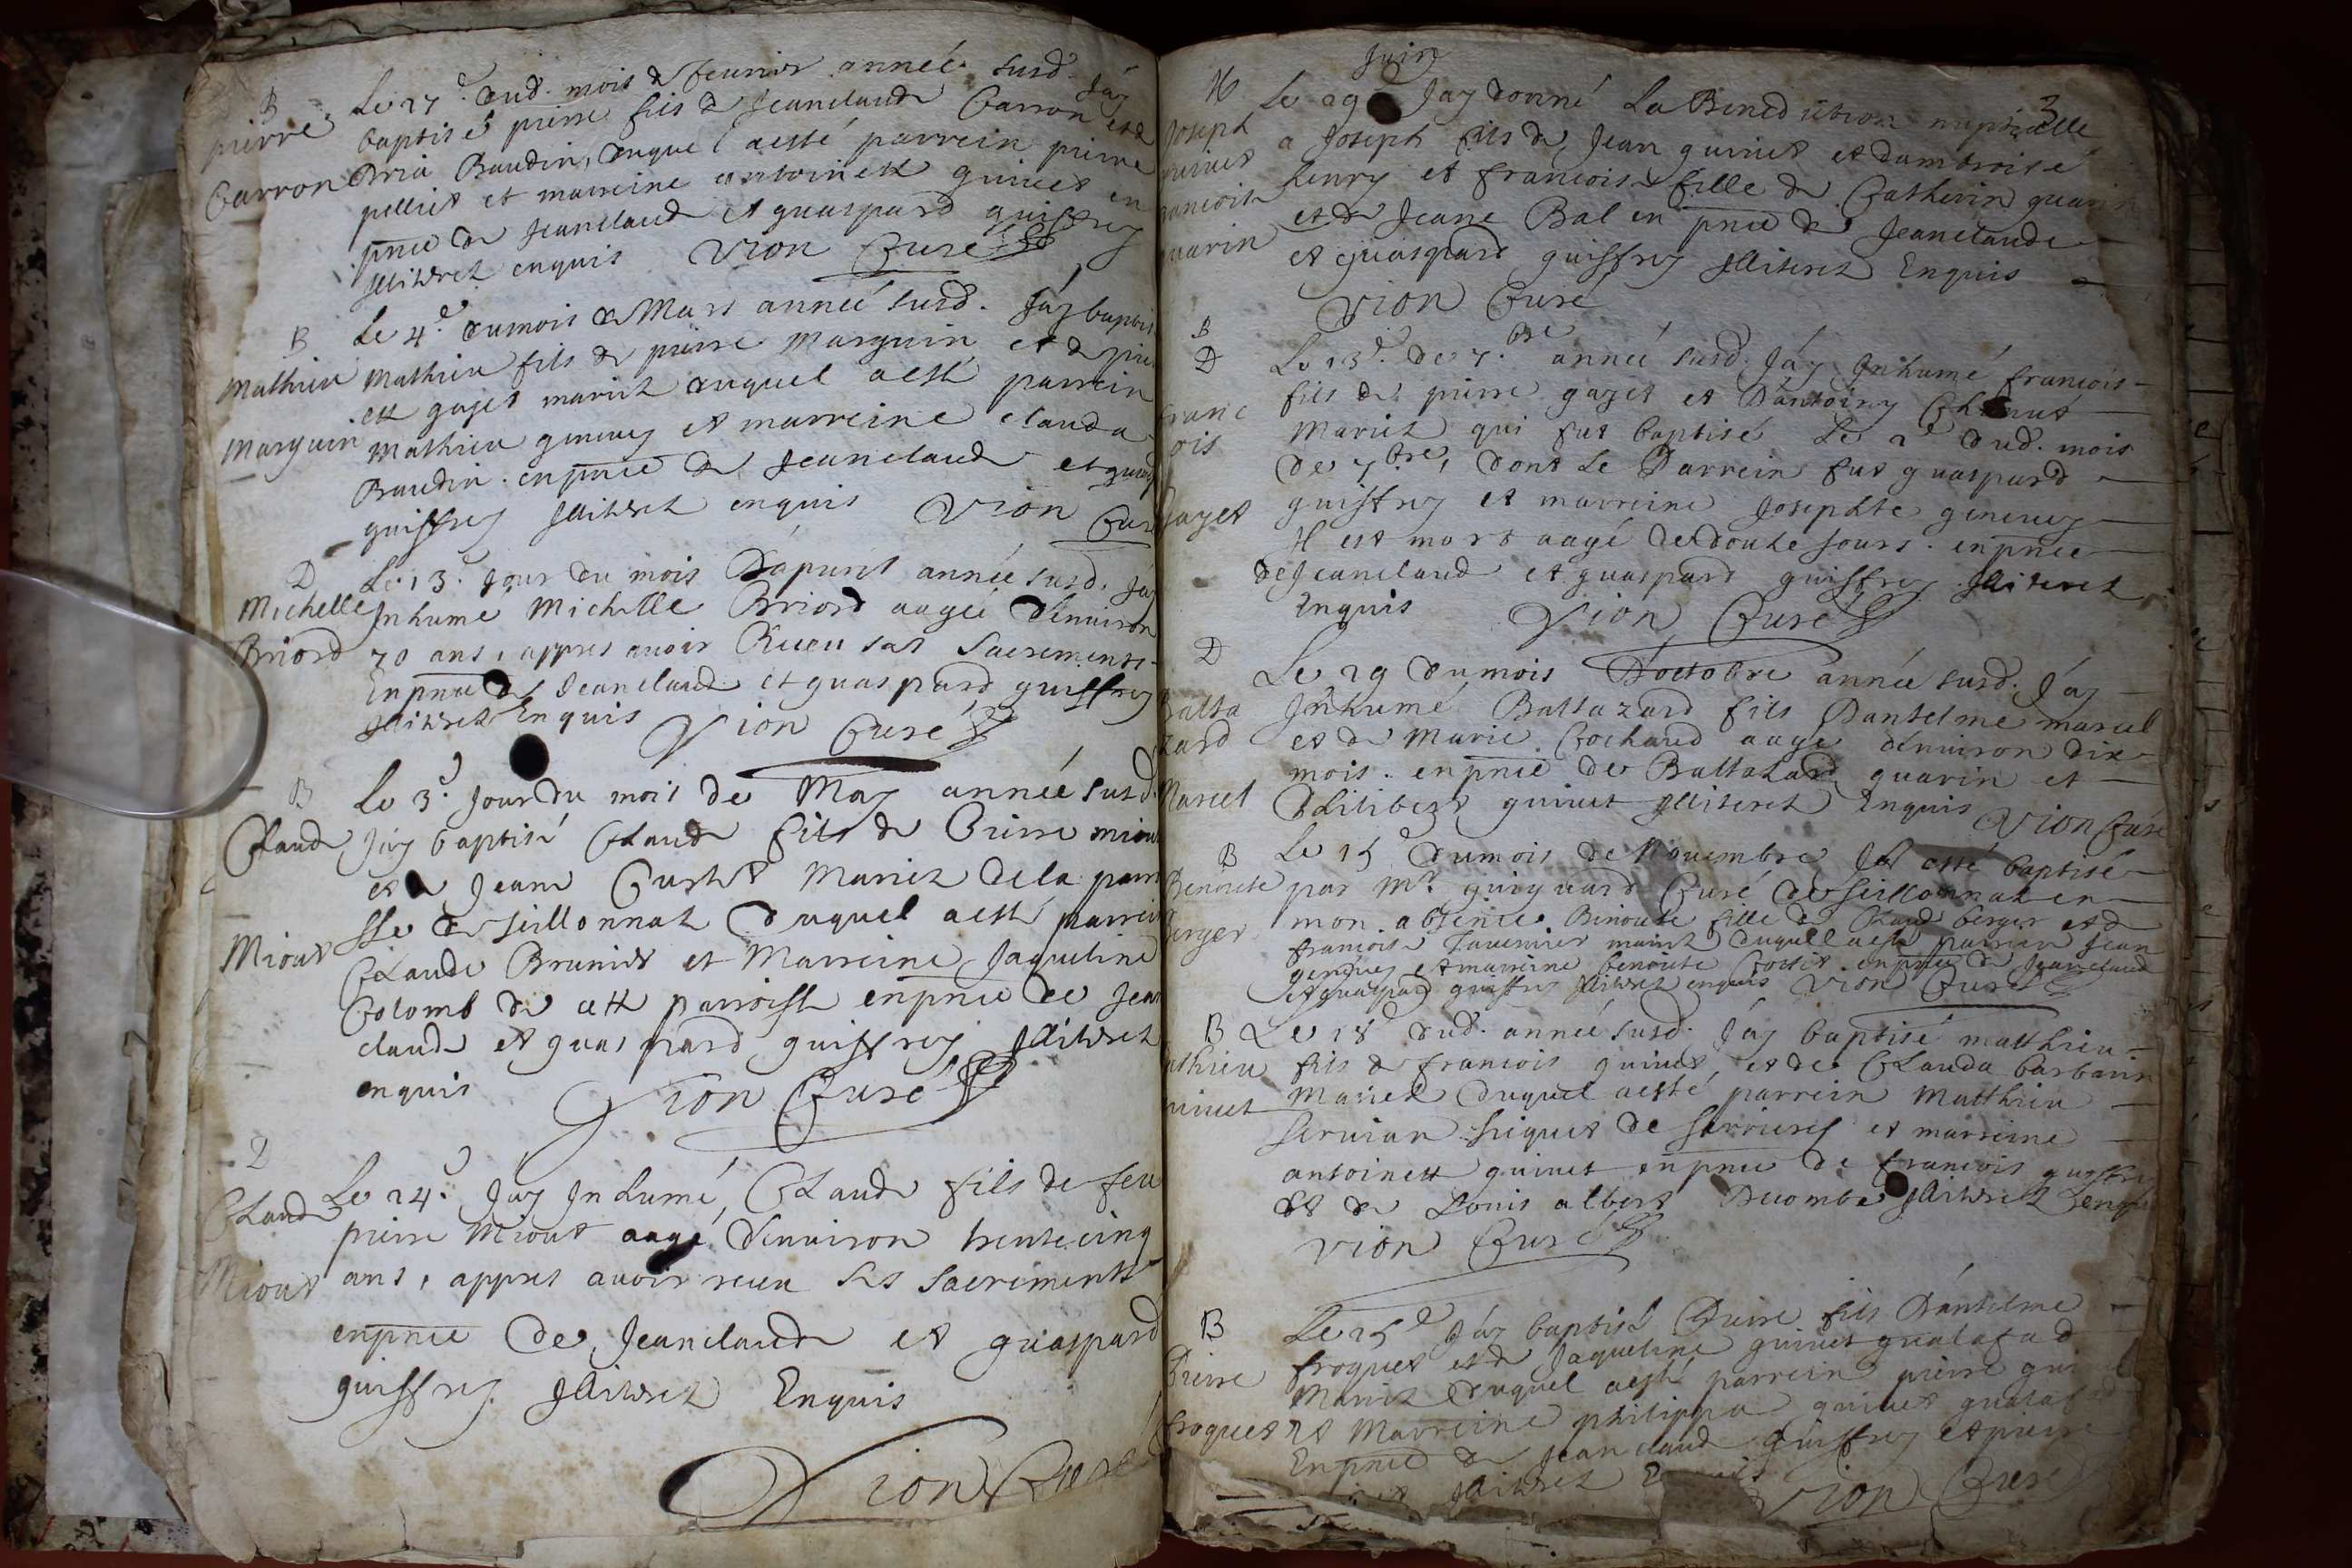 B
pierre
Carron
Le 27e dud. mois de feurier année susd. Jay
baptisé pierre fils de Jeanclaude Carron et de
Baudin, duquel aesté parrein pierre
pelliet et marreine antoinett guinet en
pnce de Jeanclaude et guaspard guiffrey
Illiteret enquis Vion Curé
B
Mathieu
Marguin
Le 4e dumois de Mars année susd. Jay baptis
Mathieu fils de pierre Marguin et de
ett gaget mariez duquel aesté parrein
Mathieu geneuey et marreine clauda
Baudin. enpnce de Jeanclaude et guas
guiffrey Illiteret enquis Vion Curé
D
Michelle
Briord
Le 13e Jour du mois D'apuril année susd. Jay
Inhumé Michelle Briord aagée d'enuiron
70 ans, appres auoir Receu ses Sacrements
Enpnce de Jeanclaude et guaspard guiffrey
Illiteret Enquis Vion Curé
B
Claude
Miout
Le 3e Jour du mois de May année susd.
Jay baptisé Claude fils de Pierre miout
et de Jeane Curtet Mariez dela parroi
sse de seillonnaz duquel aesté parrein
Claude Brunet et Marreine Jaqueline
Colomb de cett parroisse enpnce de Jean
claude et guaspard guiffrey Illiteret
enquis Vion Curé
D
Claude
Miout
Le 24e Jay Inhumé, Claude fils de feu
pierre Miout aagé d'enuiron trente cinq
ans, appres auoir receu ses Sacrements
enpnce de Jeanclaude et guaspard
guiffrey Illiteret Enquis
Vion Curé
3
Juin
Joseph
guinet
francoise
guarin
Le 29 Jay donné La Benediction nuptialle
a Joseph fils de Jean guinet et dambroise
henry et francoise fille de Catherin guarin
et de Jeane Bal en pnce de Jeanclaude
et guaspard guiffrey Illiteret Enquis
Vion Curé
B
D
franc
ois
gaget
Le 13e de 7.bre année susd. Jay Inhumé francois
fils de pierre gaget et D'antoiny
Mariez qui fut baptisé Le 2e dud. mois
de 7bre, dont Le Parrein fut guaspard
guiffrey et marreine Josephte geneuey
Il est mort aagé de douze Jours. enpnce
de Jeanclaude et guaspard guiffrey Illiteret
Enquis Vion Curé
D
Balta
zard
Marcel
Le 29 dumois D'octobre année susd. Jay
Inhumé Baltazard fils Dantelme marcel
et de Marie Cochard aagé d'enuiron dix
mois. enpnce de Baltazard guarin et
Philibert guinet Illiteret Enquis Vion Curé
B
Benoite
Berger
Le 15e dumois de Nouembre Ja esté baptisé
par Mr. guiguard Curé de seillonnaz en
mon absence Benoite fille de Claude berger et de
francoise Tauernier mariez duquell aesté parrein Jean
geneuey et marreine benoite enpnce de Jeanclaude
et guaspard guiffrey Illiteret enquis Vion Curé
B
Mathieu
guinet
Le 18e dud. année susd. Jay baptisé matthieu
fils de francois guinet, et de Clauda barbarin
Mariez duquel aesté parrein Matthieu
seruian de serrieres et marreine
antoinett guinet enpnce de francois guiffrey
et de Louis albert Ducombe Illiteret enquis
Vion Curé
B
Pierre
froquet
Le 25e Jay baptisé Pierre fils D'antelme
froquet et de Jaqueline guinet gualafad
Mariez duquel aesté parrein pierre gui
et Marreine philippa guinet gualaf
Enpnce de Jeanclaude guiffrey et pierre
Illiteret Vion Curé